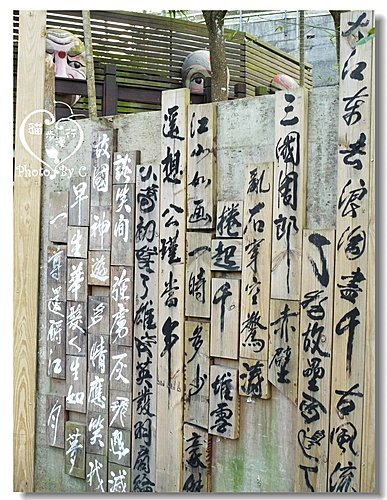 大江東去浪淘盡千古風流
故壘西邊
三國周郎赤壁
亂石穿空驚濤
捲起千堆雪
江山如畫一時多少豪傑
遙想公瑾當年
小喬初嫁了雄姿英發羽扇綸
談笑間強虜灰飛煙滅
故國神遊多情應笑我
早生華髮人生如夢
一尊還酹江月
Photo By C